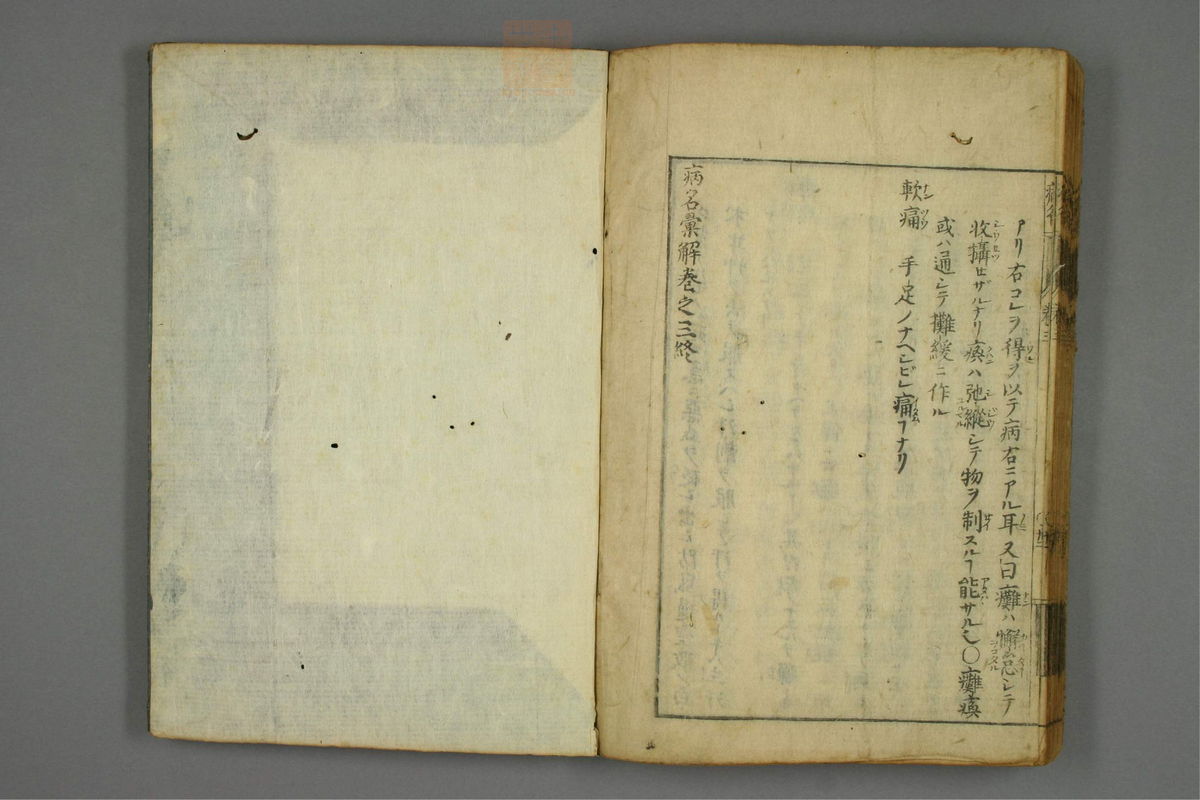 アリ右コレヲ得ヲ以テ病右ニアル耳又曰癱ハ懈惰シテ
收攝セザルナリ瘓ハ弛縱シテ物ヲ制スルヿ能サル也〇癱瘓
或ハ通シテ攤緩ニ作ル
軟痛 手足ノナヘシビレ痛ヿナリ
病名彙解巻之三終